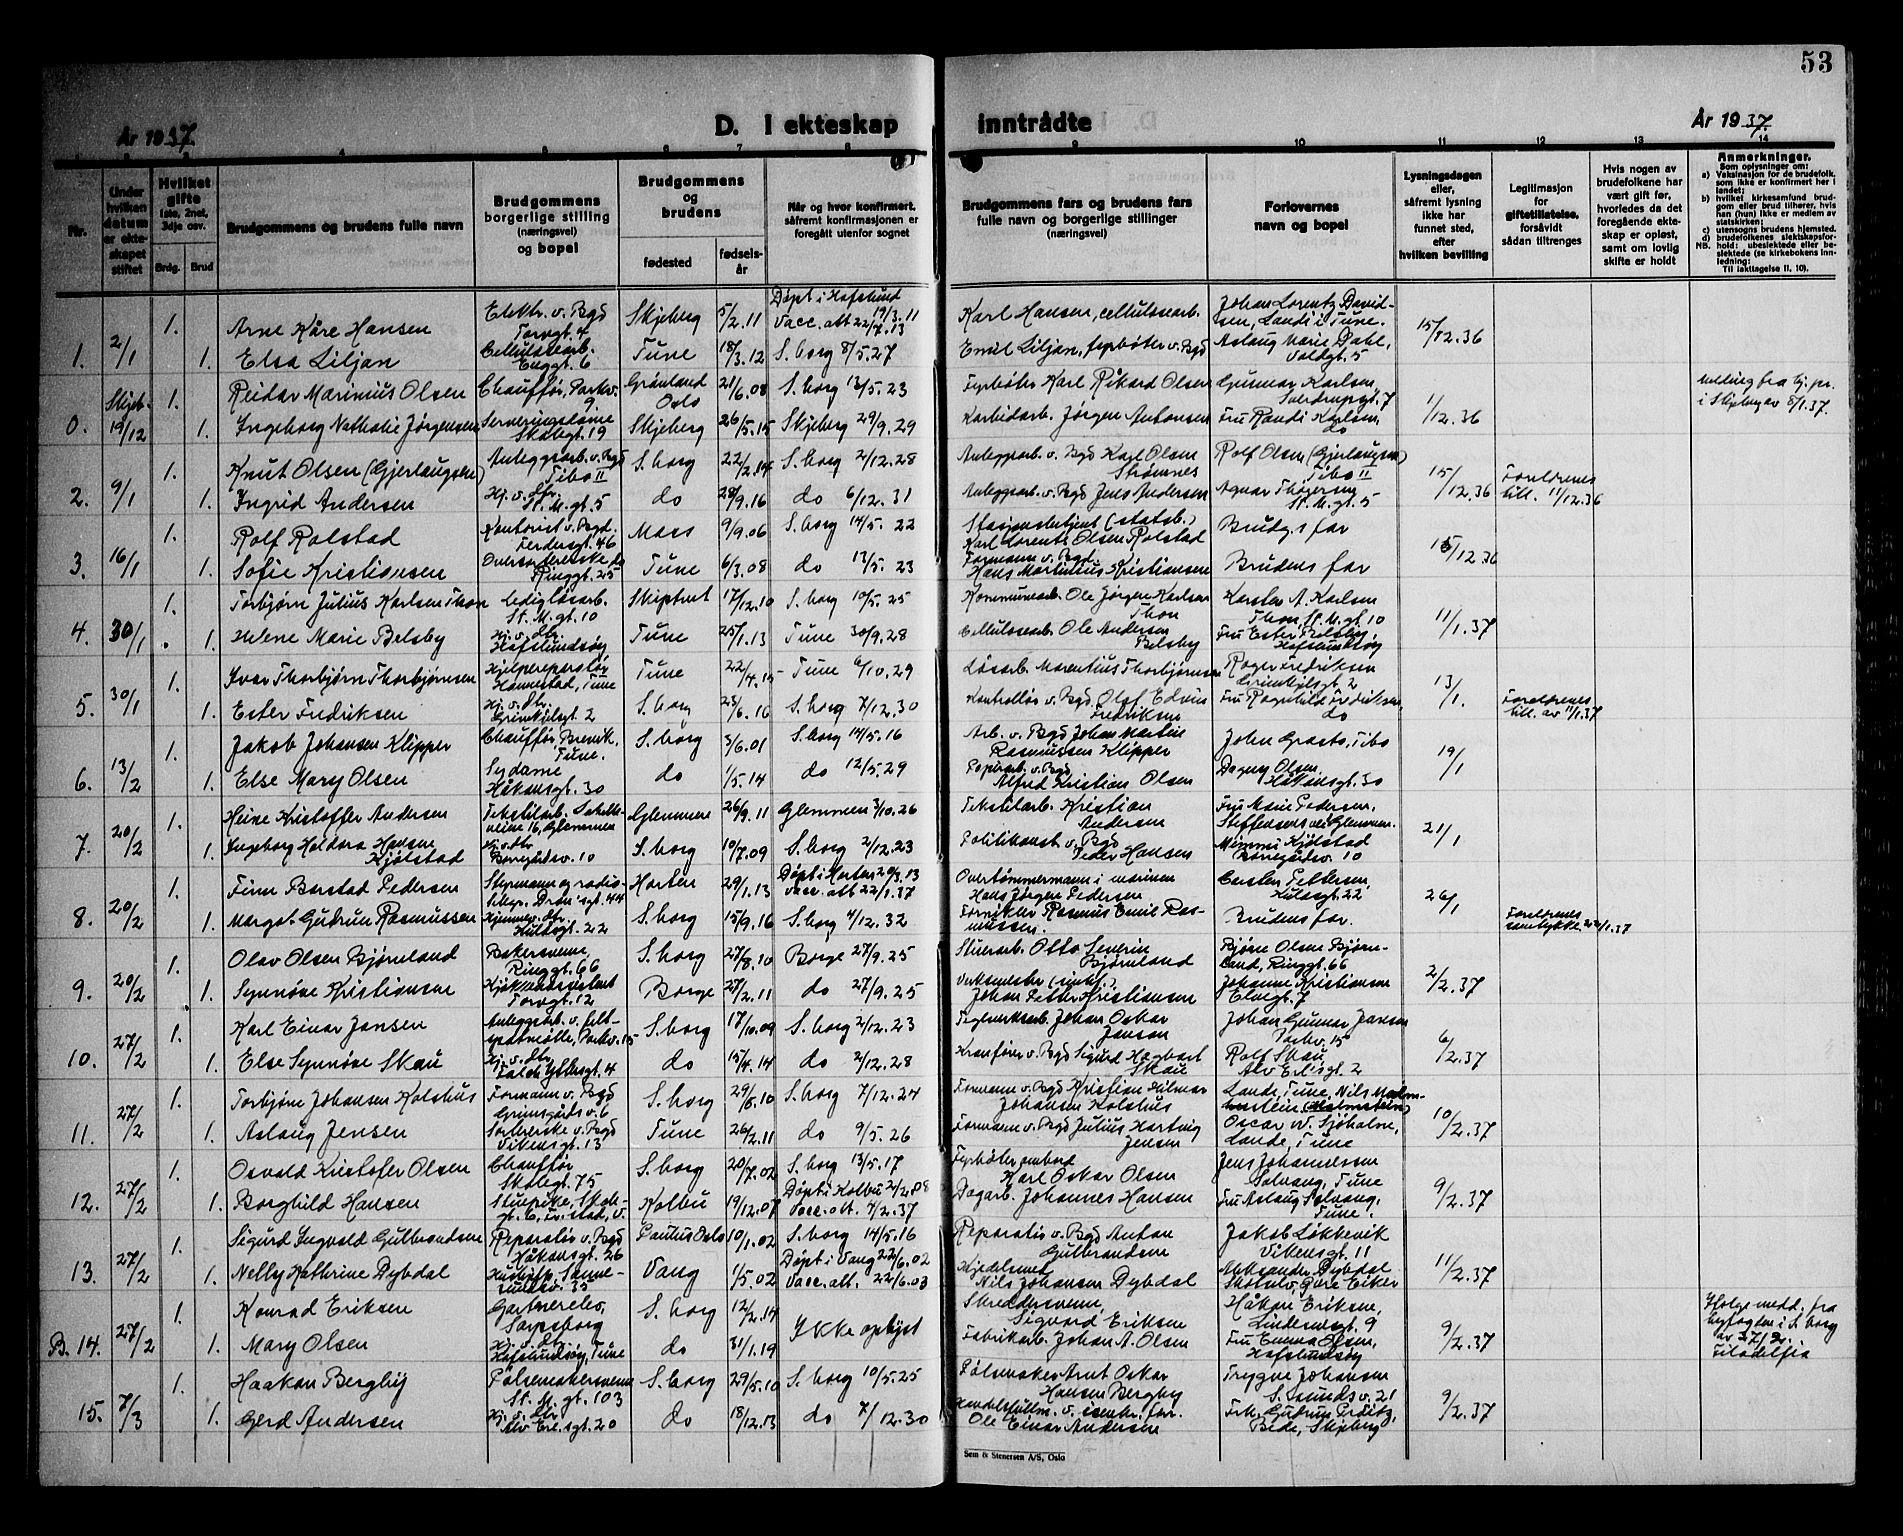 53
År 1937.
D. I ekteskap inntrådte
År 1937.
1 2 3 4 5 6 7 8 9 10 11 12 13 14
Nr.
Under hvilken datum er ekteskapet stiftet
Hvilket gifte 1ste, 2net, 3dje osv.
Brdg. Brud
Brudgommens og brudens fulle navn
Brudgommens borgerlige stilling (næringsvei) og bopel
Brudgommens og brudens
fødested
fødselsår
Når og hvor konfirmert, såfremt konfirmasjonen er foregått utenfor sognet
Brudgommens fars og brudens fars fulle navn og borgerlige stillinger (næringsvei)
Forlovernes navn og bopel
Lysningsdagen eller, såfremt lysning ikke har funnet sted, efter hvilken bevilling
Legitimasjon for giftetillatelse, forsåvidt sådan tiltrenges
Hvis nogen av brudefolkene har vært gift før, hvorledes da det foregående ekteskap er opløst, samt om lovlig skifte er holdt
Anmerkninger.
Som oplysninger om:
a) Vaksinasjon for de brudefolk, som ikke er konfirmert her i landet;
b) hvilket kirkesamfund brudgom eller brud tilhører, hvis han (hun) ikke er medlem av statskirken;
c) utensogns brudens hjemsted.
d) brudefolkenes slektskapsforhold: ubeslektede eller beslektede (se kirkebokens innledning:
NB. Til iakttagelse II. 10).
1. 2/1 1. Arne Kåre Hansen Elektr. v. Bgd Torvgt. 4 Skjeberg 5/2.11 Døpt i Hafslund 19/3.11 Vacc. att 22/7.13 Karl Hansen, cellulosearb. Johan Lorentz Davidsen, Lande i Tune. 15/12.36
1. Elsa Liljan Cellulosearb. Enggt. 6 Tune 18/3.12 S.borg 8/5.27 Emil Liljan, fyrbøter v. Bgd Aslaug Marie Dahl, Voldgt. 5
0. Skjeb. 19/12 1. Reidar Marinius Olsen Chauffør, Parkv. 9. Grønland Oslo 21/6.08 S.borg 13/5.23 Fyrbøter Karl Rikard Olsen Gunnar Karlsen, Sverdrupsgt. 7 1/12.36 Melding fra kj. pr. i Skjeberg av 8/1.37.
1. Ingeborg Nathalie Jørgensen Serveringsdame Skolegt. 19 Skjeberg 26/5.15 Skjeberg 29/9.29 Karbidarb. Jørgen Antonsen Fru Randi Karlsen, do
2. 9/1 1. Knut Olsen (Gjerlaugsen) Anleggsarb. v. Bgd Tibo II S.borg 22/2.14 S.borg 2/12.28 Anleggsarb. v. Bgd Karl Olsen Strømnes Rolf Olsen (Gjerlaugsen) Tibo II 15/12.36 Foreldrenes till. 11/12.36
1. Ingrid Andersen Hj. v. dtr. St. M. gt. 5 do 28/9.16 do 6/12.31 Anleggsarb. v. Bgd Jens Andersen Agnar Thøgersen St. M. gt. 5
3. 16/1 1. Rolf Rolstad Kontorist v. Bgd. Ferdersgt. 46 Moss 9/9.06 S.borg 14/5.22 Stasjonsbetjent (statsb.) Karl Lorents Olsen Rolstad Brudg.s far 15/12.36
1. Sofie Kristiansen Oversorterske do Ringgt. 25 Tune 6/3.08 do 13/5.23 Formann v. Bgd. Hans Martinius Kristiansen Brudens far
4. 30/1 1. Torbjørn Julius Karlsen Thon Ledig løsarb. St. M. gt. 10 Skiptvet 17/12.10 S.borg 10/5.25 Kommunearb. Ole Jørgen Karlsen Thon Karsten A. Karlsen Thon, St. M. gt 10 11/1.37
1. Helene Marie Belsby Hj. v. dtr. Hafslundsøy Tune 25/1.13 Tune 30/9.28 Cellulosearb. Ole Andersen Belsby Fru Ester Belsby, Hafslundsøy
5. 30/1 1. Ivar Thorbjørn Thorbjørnsen Hjelpereperatør Hannestad, Tune Tune 22/4.15 Tune 6/10.29 Løsarb. Marentius Thorbjørnsen Roger Fredriksen Grimkjelsgt. 2 13/1.
1. Ester Fredriksen Hj. v. dtr. Grimkjelsgt. 2 S.borg 23/6.16 S.borg 7/12.30 Kontrollør v. Bgd Olaf Edvin Fredriksen Fru Ragnhild Fredriksen do Foreldrenes till. av 11/1.37
6. 13/2 1. Jakob Johansen Klipper Chauffør, Brevik, Tune. S.borg 3/6.01 S.borg 14/5.16 Arb. v. Bgd Johan Martin Rasmussen Klipper John Grasto, Tibo 19/1
1. Else Mary Olsen Sydame Håkonsgt. 30 do 1/5.14 do 12/5.29 Papirarb. v. Bgd Alfred Kristian Olsen Dagny Olsen, Håkonsgt. 30
7. 20/2 1. Heine Kristoffer Andersen Tekstilarb. 16, Glemmen Glemmen 26/9.11 Glemmen 3/10.26 Tekstilarb. Kristian Andersen Fru Marie Pedersen, Glemmen. 21/1
1. Ingeborg Haldora Hansen Kjølstad Hj. v. dtr Borregårdsv. 10 S.borg 10/7.09 S.borg 2/12.23 Politikonst. v. Bgd Peder Hansen Mimmi Kjølstad Borregårdsv. 10
8. 20/2 1. Finn Barstad Pedersen Styrmann og radiotelegr. Dron.sgt. 44 Horten 29/1.13 Døpt i Horten 20/3.13 Vacc. att 22/1.37 Overtømmermann i marinen Hans Jørgen Pedersen Carsten Pettersen, Kulåsgt. 22 26/1
1. Margot Gudrun Rasmussen Hjemmev. dtr. Kulåsgt. 22 S.borg 15/9.16 S.borg 4/12.32 Fornikler Rasmus Emil Rasmussen. Brudens far. Foreldrenes samtykke 22/1.37
9. 20/2 1. Olav Olsen Bjørnland Bakersvenn, Ringgt. 66 S.borg 27/8.10 Borge 27/9.25 Stuerarb. Otto Severin Bjørnland Bjarne Olsen Bjørnland, Ringgt. 66 2/2.37
1. Synnøve Kristiansen Kjøkkenassistent Torvgt. 12 Borge 27/2.11 do 27/9.25 Verksmester Johan Petter Kristiansen Johanne Kristiansen Elvegt. 7
10. 27/2 1. Karl Einar Jansen Anleggsarb. v. feltspatmølle, Parkv. 15 S.borg 17/10.09 S.borg 2/12.23 Teglverksarb. Johan Oskar Jansen Johan Gunnar Jansen Parkv. 15 6/2.37
1. Else Synnøve Skau Hj. v. dtr Falch Ytters gt. 4 do 15/4.14 do 2/12.28 Kranfører v. Bgd Sigurd Hagbart Skau Rolf Skau, Alv Erl.sgt. 2
11. 27/2 1. Torbjørn Johansen Kolshus Formann v. Bgd Grimsgårds v. 6 S.borg 29/6.10 S.borg 7/12.24 Formann v. Bgd Kristian Hilmar Johansen Kolshus Lande, Tune, Nils (Malmstein) 10/2.37
1. Aslaug Jensen Sorterske v. Bgd Vikensgt. 13 Tune 26/2.11 do 9/5.26 Formann v. Bgd Julius Hartvig Jensen Oscar W. Sjøholm, Lande, Tune
12. 27/2 1. Osvald Kristofer Olsen Chauffør Skolegt. 75 S.borg 20/7.02 S.borg 13/5.17 Fyrbøter ombord Karl Oskar Olsen Jens Johannessen Solvang, Tune 9/2.37
1. Borghild Hansen Stuepike, Skolegt. 6, Fr.stad, v. Kolbu 19/12.07 Døpt i Kolbu 2/2.08 Vacc. att. 4/2.37 Dagarb. Johannes Hansen Fru Aslaug Solvang, Tune.
13. 27/2 1. Sigurd Ingvald Gulbrandsen Reparatør v. Bgd Håkonsgt. 26 Paulus Oslo 10/1.02 S.borg 14/5.16 Reparatør v. Bgd Anton Gulbrandsen Jakob Løkkevik Vikensgt. 11 11/2.37
1. Nelly Kathrine Dybdal 35 Vang 1/5.02 Døpt i Vang 22/6.02 Vacc. att. 22/6.03 Kjedelsmed Nils Johansen Dybdal Aleksander Dybdal Skotselv, Øvre Eiker
B. 14. 27/2 1. Konrad Eriksen Gartnerelev, Sarpsborg S.borg 12/2.14 Ikke oplyst Skreddersvenn, Sigvard Eriksen Håkon Eriksen, Lindemsgt. 9 9/2.37 Ifølge medd. fra byfogden i S.borg av 27/2. Filadelfia
1. Mary Olsen Hj. v. dtr. Hafslundsøy, Tune do 31/1.19 Fabrikarb. Johan A. Olsen Fru Emma Olsen, Hafslundsøy
15. 7/3 1. Haakon Bergby Pølsemakersvenn St. M. gt. 103 S.borg 29/5.10 S.borg 10/5.25 Pølsemaker Arnt Oskar Hansen Bergby Trygve Johansen S.sunds v. 21 9/2.37
1. Gerd Andersen Hj. v. dtr. Alv Erl.sgt. 20 do 18/12.13 do 7/12.30 Handelsfullm. v. isenkr. forr. Ole Einar Andersen Frk. Gudrun Prøitz, Bede, Skjeberg
Sem & Stenersen A/S, Oslo